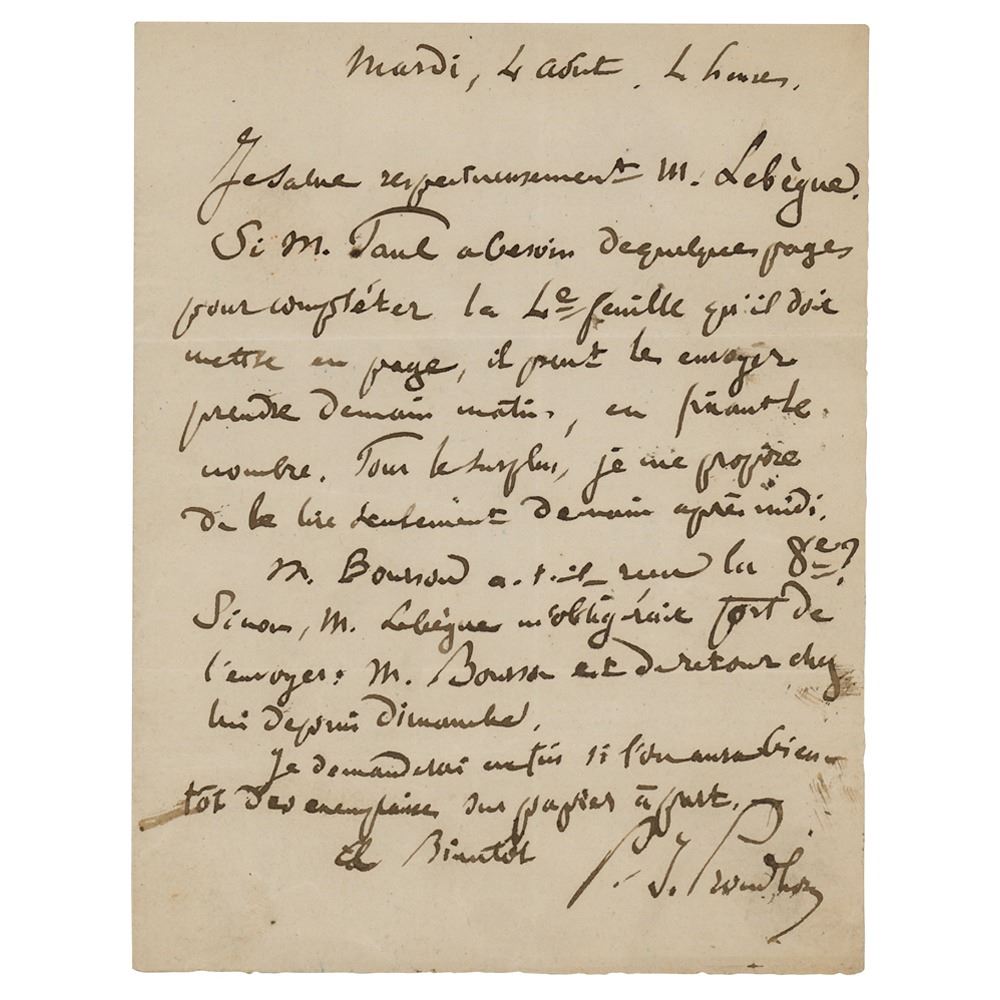 Mardi, 4 août, 4 heures.
Je salue respectueusement M. Lebègue.
Si M. Paul a besoin de quelques pages
pour compléter la 4e feuille qu'il doit
mettre en page, il peut les envoyer
prendre demain matin, en fixant le
nombre. Pour le surplus, je me propose
de le lire seulement demain après midi.
M. Bourson a-t-il reçu la 8e?
Sinon, M. Lebègue m'obligerait fort de
l'envoyer: M. Bourson est de retour chez
lui depuis Dimanche.
Je demanderai enfin si l'on aura bien-
tôt des exemplaires sur papier à part.
à Bientôt
P. J. Proudhon